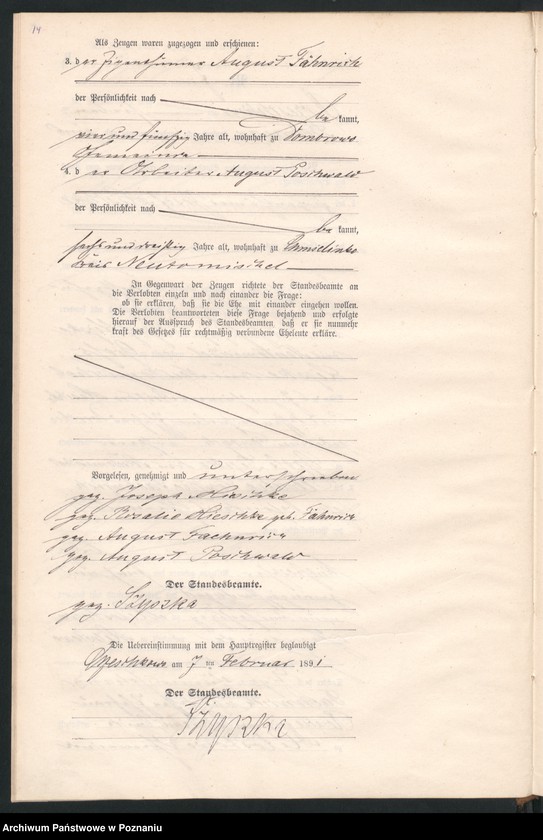 14
Als Zeugen waren zugezogen und erschienen:
3. d er Eigenthümer August Fähnrich
der Persönlichkeit nach
be kannt,
vier und fünfzig Jahre alt, wohnhaft zu Dombrowo
Gemeinde
4. d er Arbeiter August Poschwald
der Persönlichkeit nach
be kannt,
sechs und dreißig Jahre alt, wohnhaft zu Chmielinko
Kreis Neutomischel
In Gegenwart der Zeugen richtete der Standesbeamte an
die Verlobten einzeln und nach einander die Frage:
ob sie erklären, daß sie die Ehe mit einander eingehen wollen.
Die Verlobten beantworteten diese Frage bejahend und erfolgte
hierauf der Ausspruch des Standesbeamten, daß er sie nunmehr
kraft des Gesetzes für rechtmäßig verbundene Eheleute erkläre.
Vorgelesen, genehmigt und unterschrieben
gez. Joseph
gez. Rosalie geb. Fähnrich
gez. August Faehnrich
gez. August Poschwald
Der Standesbeamte.
gez. Szyszka
Die Uebereinstimmung mit dem Hauptregister beglaubigt
am 7 ten Februar 1891
Der Standesbeamte.
Szyszka
Archiwum Państwowe w Poznaniu